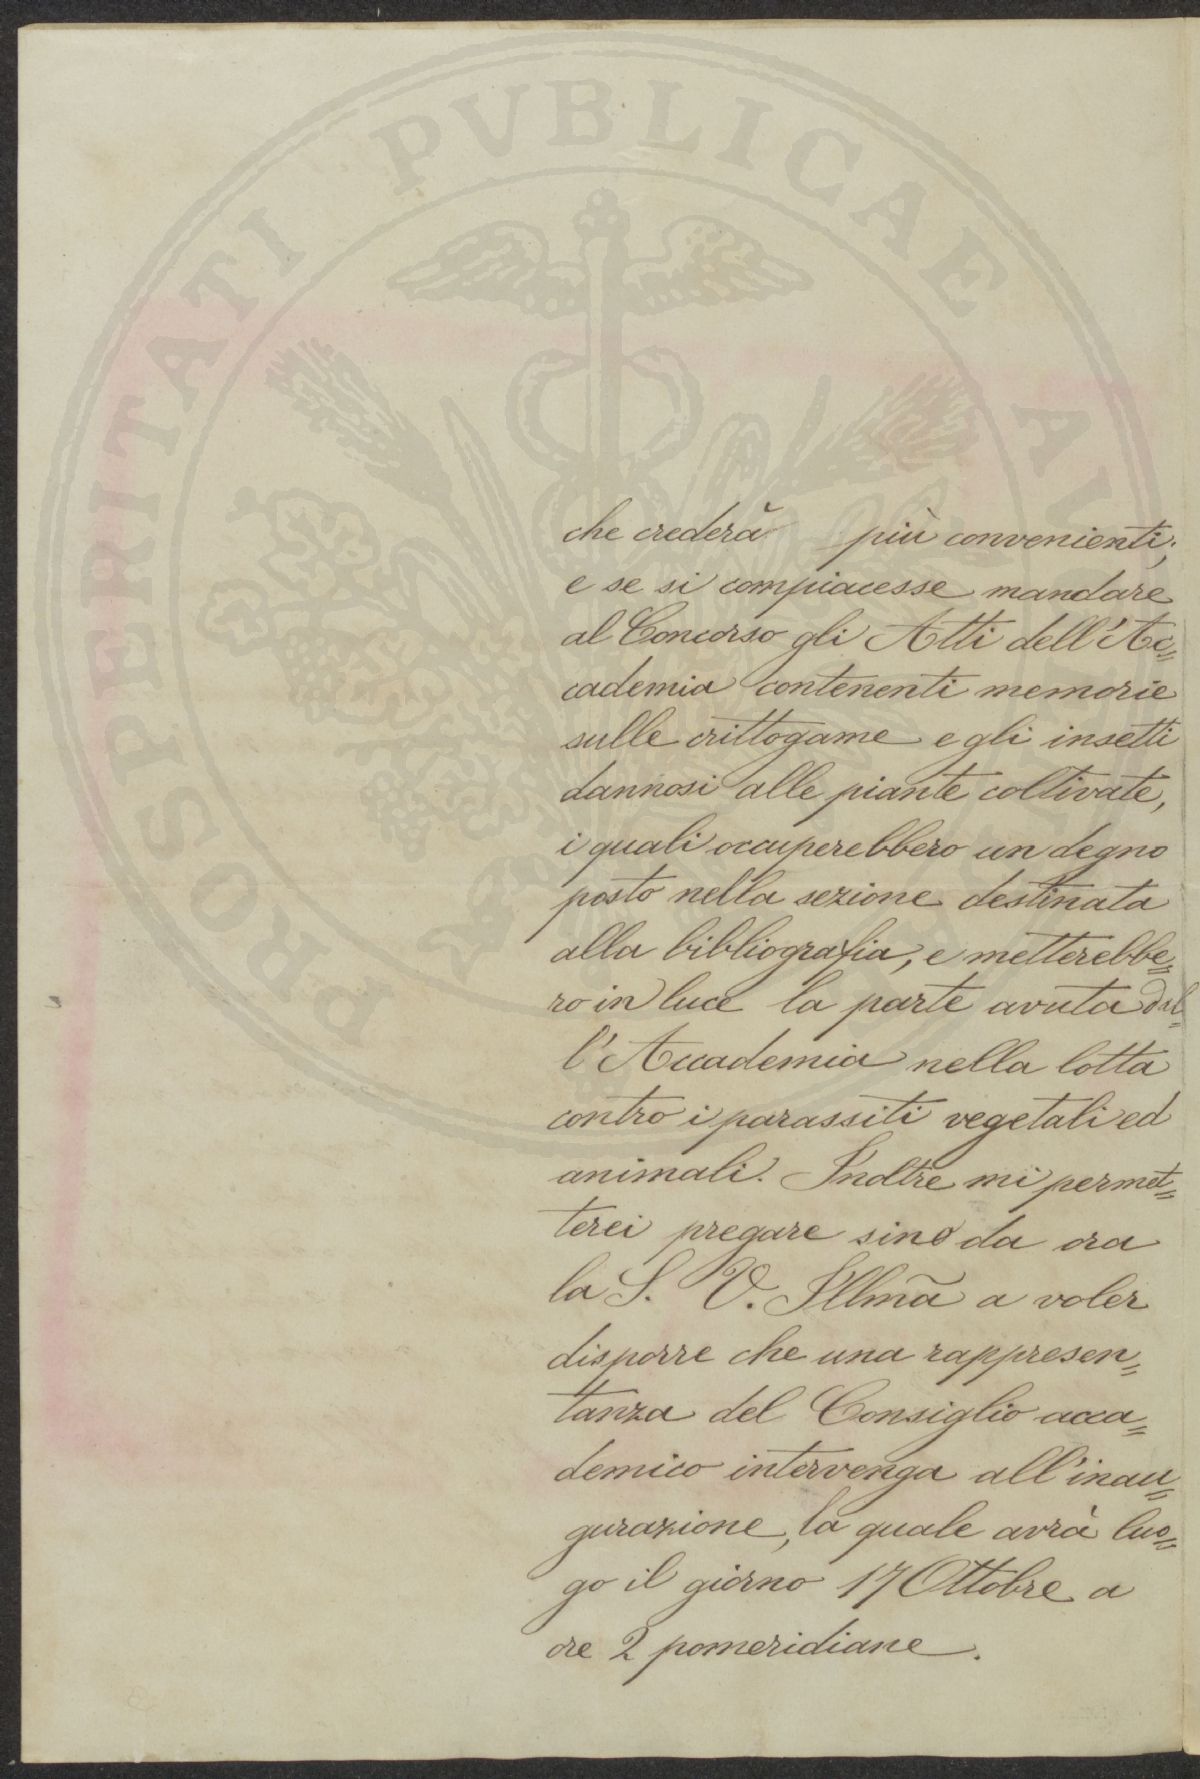 PROSPERITATI PVBLICAE AV
che crederà più convenienti;
e se si compiacesse mandare
al Concorso gli Atti dell'Ac=
cademia contenenti memorie
sulle crittogame e gli insetti
dannosi alle piante coltivate,
i quali occuperebbero un degno
posto nella sezione destinata
alla bibliografia, e metterebbe=
ro in luce la parte avuta dal=
l'Accademia nella lotta
contro i parassiti vegetali ed
animali. Inoltre mi permet=
terei pregare sino da ora
la S. V. Illma a voler
disporre che una rappresen=
tanza del Consiglio acca=
demico intervenga all'inau=
gurazione, la quale avrà luo=
go il giorno 17 Ottobre a
ore 2 pomeridiane.